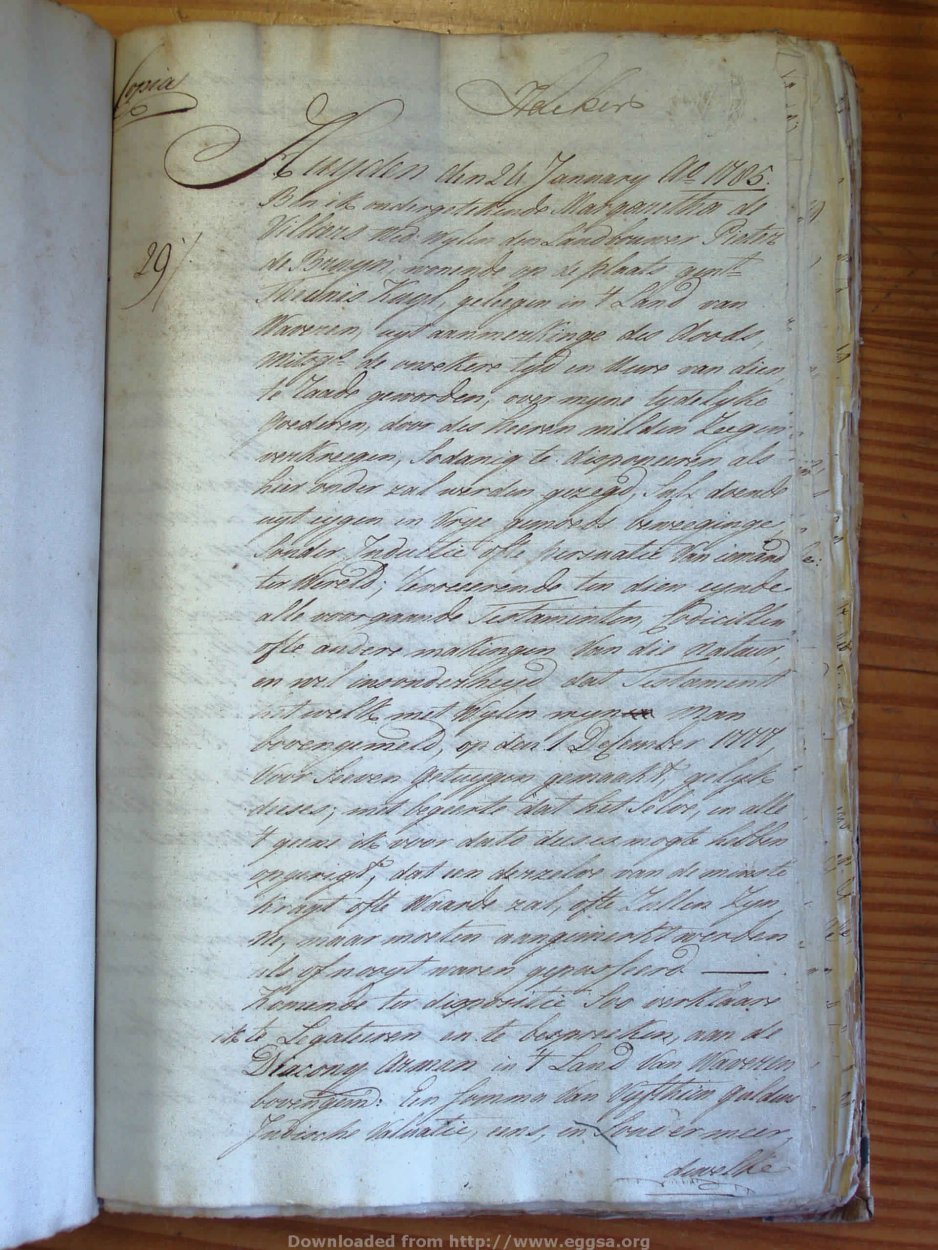 Copia
Huyden den 24 January Ao. 1785.
Ben ik ondergetekende Margaretha de
Villiers Wed. Wylen den Landbouwer Pieter
de Bruyn, wonende op de plaats gent.
Kugl, geleegen in 't Land van
Waveren, uyt aanmerkinge des doods,
mitsgs. de onsekere tyd en Uure van dien
te Raade geworden, over myne tydelyke
goederen, door des Heeren milden Zeegen
verkreegen, Sodanig te disponeeren als
hier onder zal werden gezegd, Sulx doende
uyt eygen en vrye gemoeds beweeginge,
Sonder Inductie ofte persuatie van iemand
ter Wereld; Revoceerende ten dien eynde
alle voorgaande Testamenten, Codicillen
ofte andere makingen van die Natuur,
en wel insonderheyd dat Testament
het welk met Wylen myn Man
bovengemeld, op den 1 December 1777,
voor Seeven getuygen gemaakt, gelyk
deeses; met begeerte dat het Selve, en alle
't geene ik voor dato deeses mogte hebben
opgerigt, dat een derzelve van de minste
kragt ofte Waarde zal, ofte Zullen Zyn
Ne, maar moeten aangemerkt werden
als of nooyt waren gepasseerd. —
Komende ter dispositie Soo verklaare
ik te Legateeren en te bespreeken, aan de
Diacony Arman in 't Land van Waveren
bovengem: Een Somma van Vyfthien guldens
Indische Valuatie, eens, en Sonder meer,
dewelke
29/
Downloaded from http://www.eggsa.org